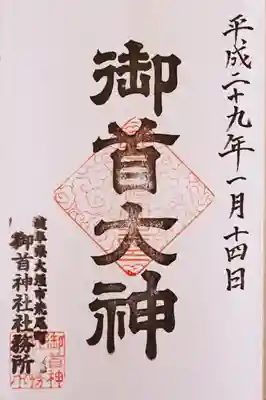 平成二十九年一月十四日
御首大神
岐阜県大垣市荒尾町
御首神社社務所
御首神